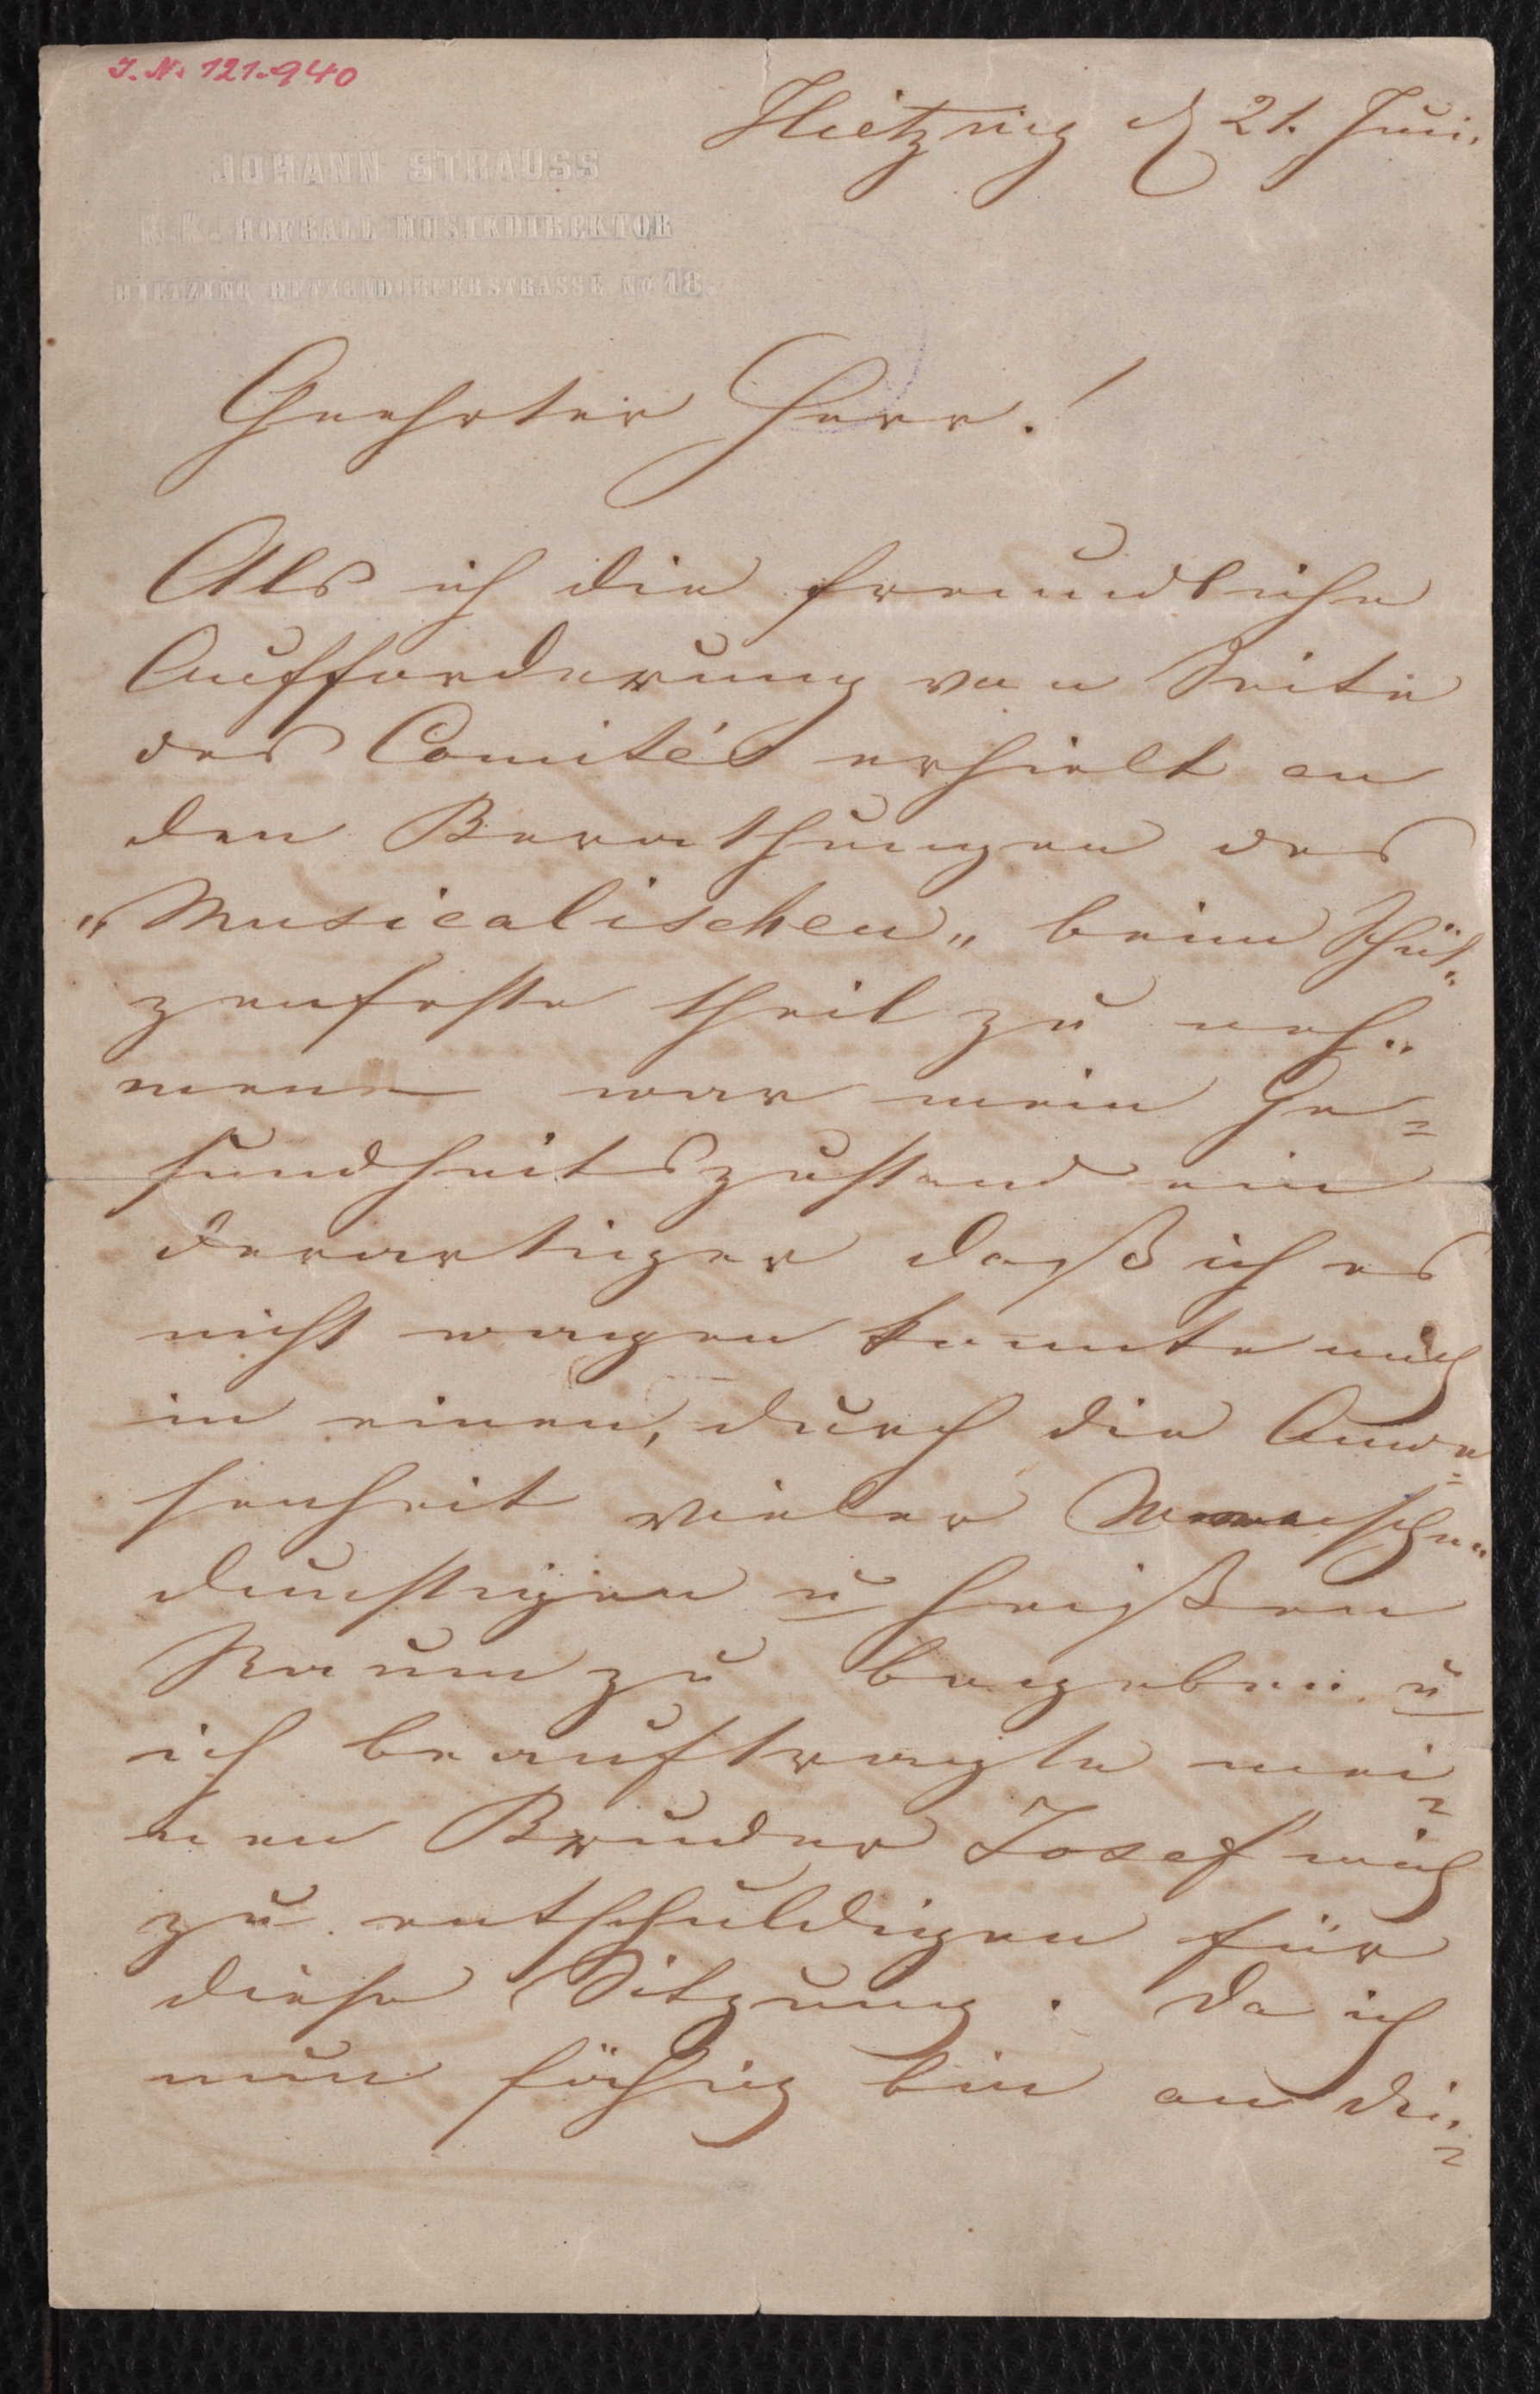 J. N. 121.940
Hietzing d 21. Juni.
JOHANN STRAUSS
K.K. HOFBALL MUSIKDIREKTOR
HIETZING HETZENDORFERSTRASSE No 18.
Geehrter Herr!
Als ich die freundliche
Aufforderung von Seite
des Comités erhielt an
den Berathungen des
„Musicalischen„ beim Schüt„
zenfeste theil zu neh„
men war mein Ge=
sundheitszustand ein
derartiger daß ich es
nicht wagen konnte mich
in einen, durch die Anwe=
senheit vieler Menschen„
dunstigen u heißen
Raum zu begeben u
ich beauftragte mei=
nen Bruder Josef mich
zu entschuldigen für
diese Sitzung. Da ich
nun fähig bin an die=